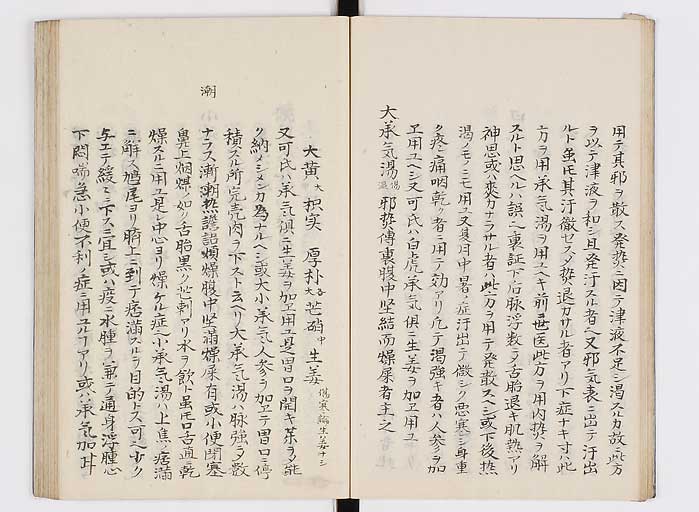 用テ其邪ヲ散ス発熱ニ因テ津液不足シ渇スルカ故此方
ヲ以テ津液ヲ和シ且発汗スル者ヘ又邪気表ニ出テ汗出
ルト雖𪜈其汗徹セスノ熱退カサル者アリ下症ナキ寸ハ此
方ヲ用承気湯ヲ用ユヘキ前世医此方ヲ用内熱ヲ解
スルト思ヘルハ誤ニ裏証下后脉浮数ニノ舌胎退キ肌熱アリ
神思或ハ爽カナラサル者ハ此方ヲ用テ発散スヘシ或下後熱
渇ノモノニモ用ユ又夏月中暑ノ症汗出テ微シク悪寒シ身重
ク疼痛咽乾ク者ニ用テ効アリ凡テ渇強キ者ハ人参ヲ加
ヱ用ユヘシ又可氏ハ白虎承気俱ニ生姜ヲ加ヱ用ユ
大承気湯 傷温 邪熱傳裏腹中坚結而燥屎者主之
大黄大 枳実 厚朴各大 芒硝中 生姜 傷寒論生姜ナシ
又可氏ハ承気俱ニ生姜ヲ加ヱ用ユ是胃口ヲ開キ茶ヲ能
ク納メシメンカ為ナルヘシ或大小承気人参ヲ加ヱテ胃口ニ停
積スル所完壳肉ヲ下スト云ヘリ大承気湯ハ脉強ク数
ナラス漸潮熱譫語煩燥腹中坚満燥屎有或小便閉塞
潮
鼻上烟煤ノ如ク舌胎黒ク芒刺アリ水ヲ飲ト雖𪜈口舌通乾
燥スルニ用ユ是レ中心ヨリ燥ケル症ニ小承気湯ハ上焦痞満
ニ解鳩尾ヨリ臍上ニ到テ痞満スルヲ目的トス可シ少ク
与エテ緩々ニ下ス宜シ或ハ疫ニ水腫ヲ兼テ通身浮腫心
下悶喘急小便不利ノ症ニ用ユルヿアリ或ハ承気加